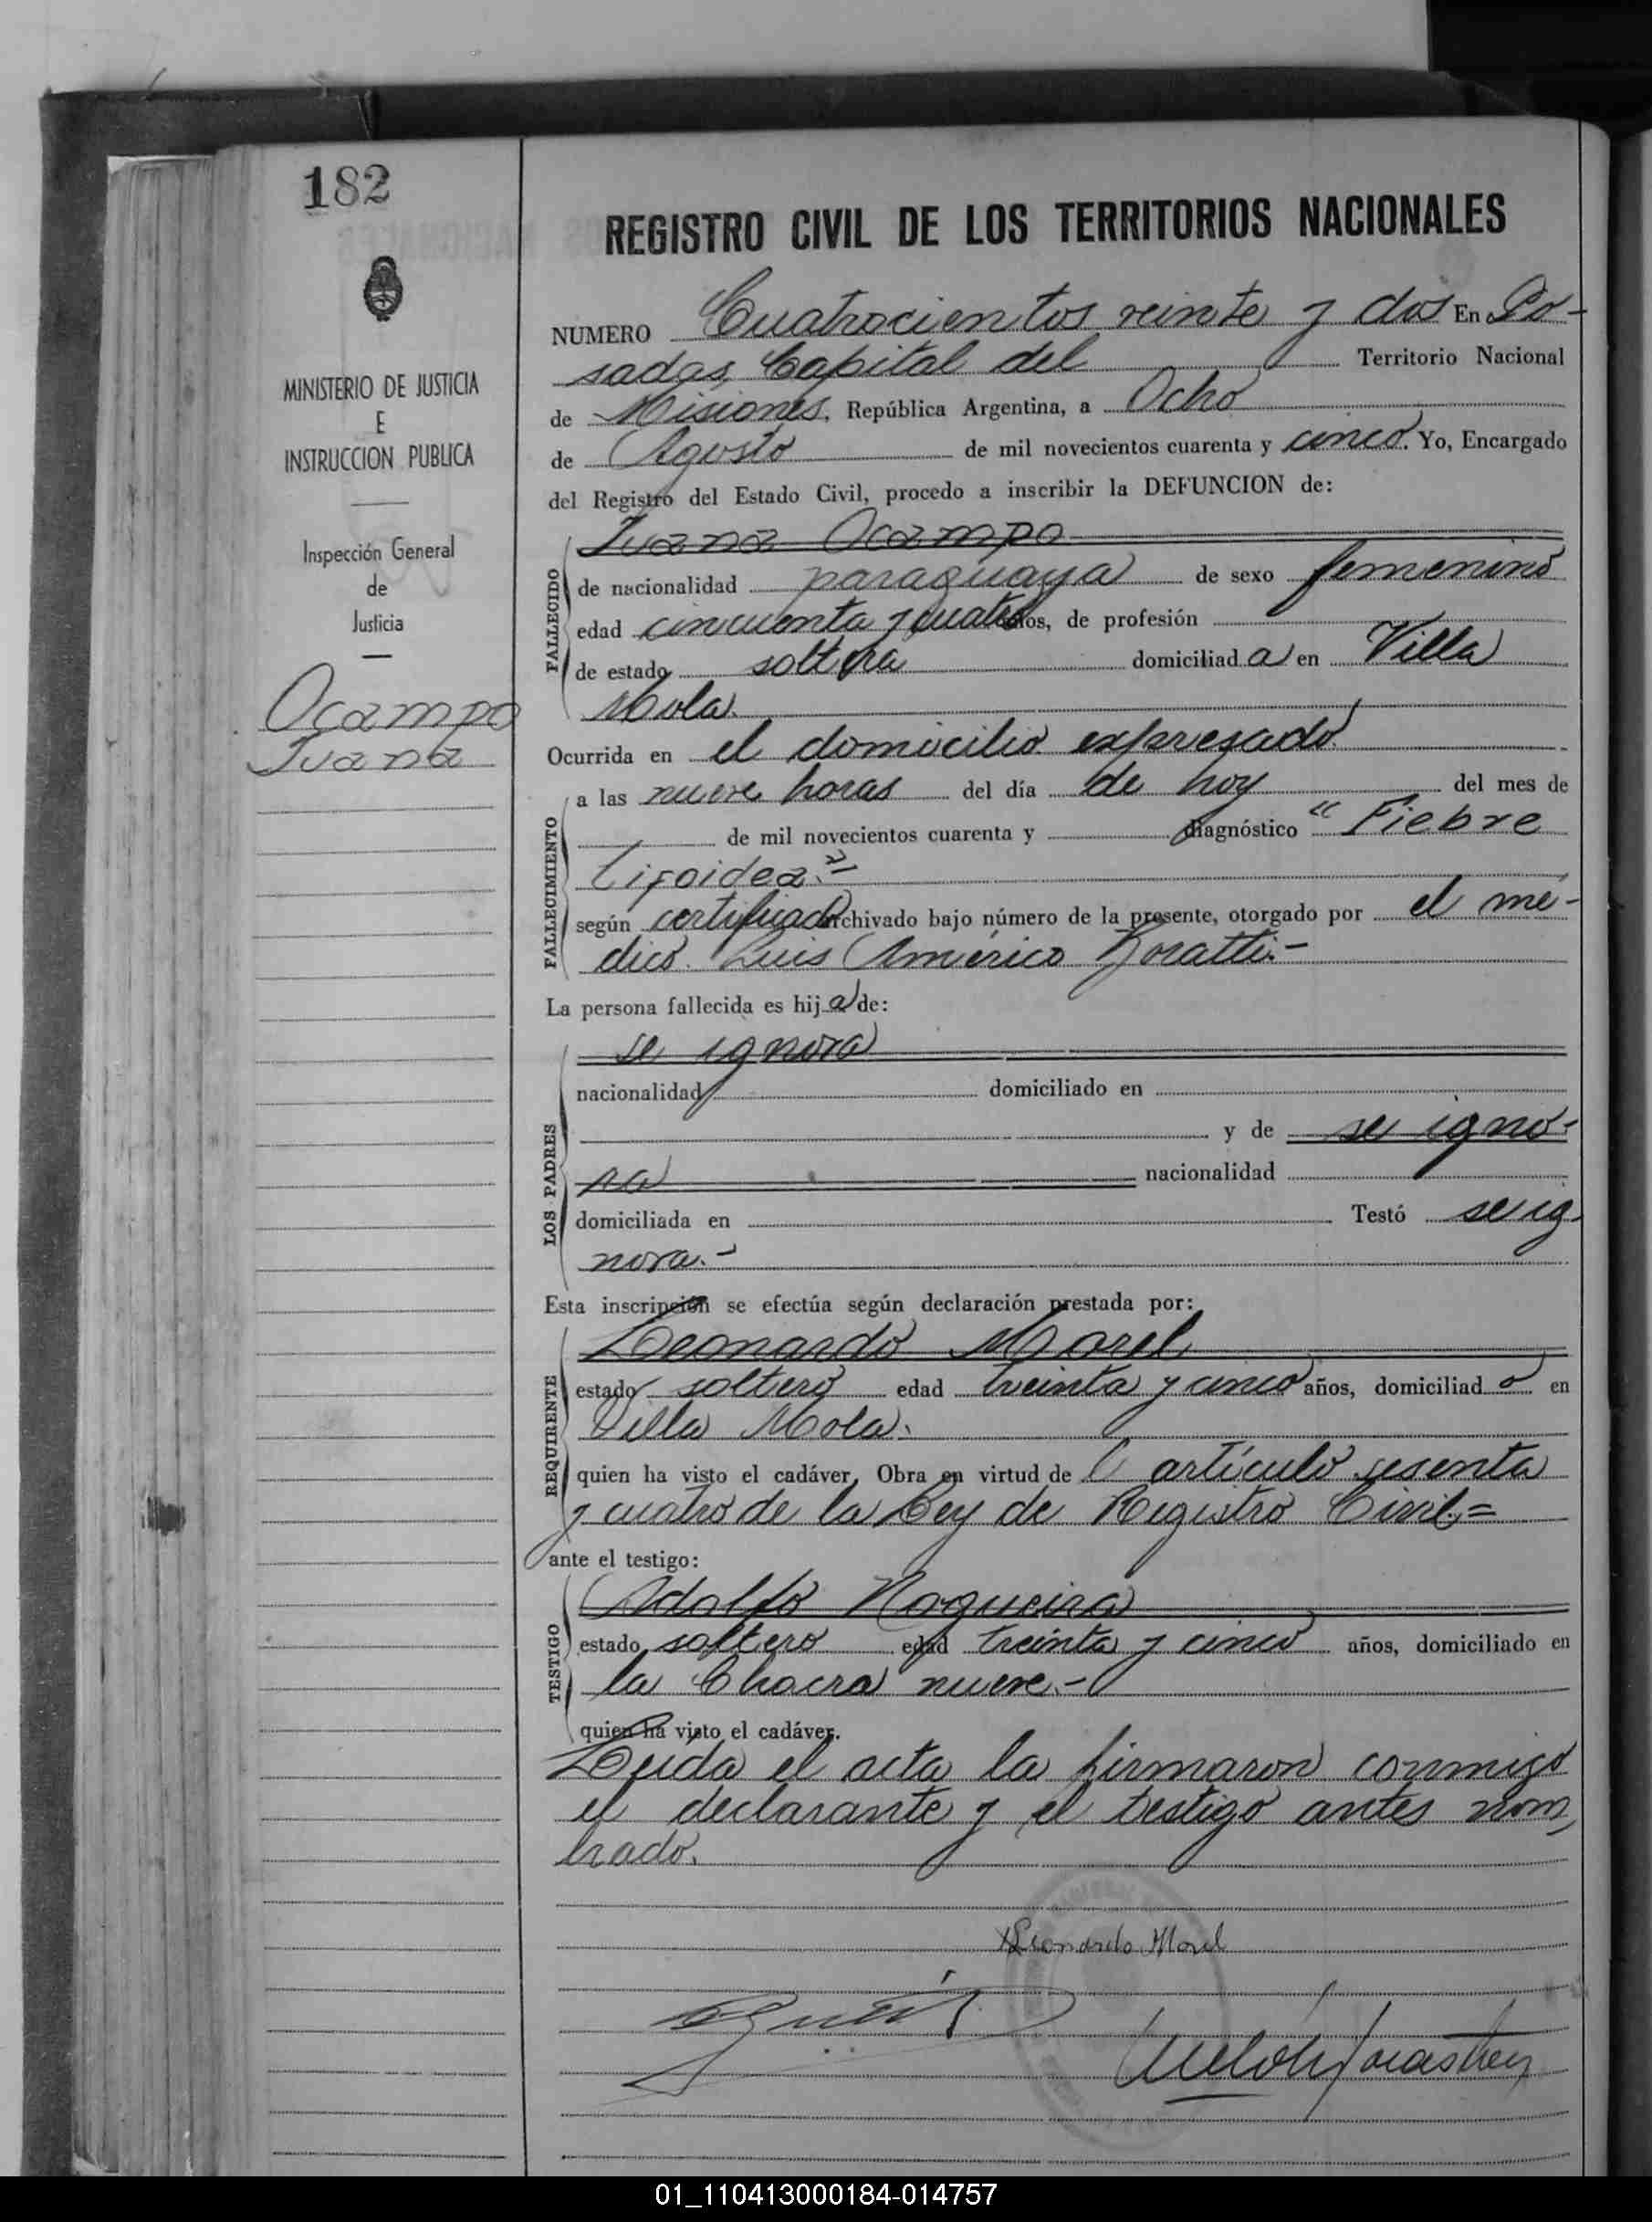 182
MINISTERIO DE JUSTICIA
E
INSTRUCCION PUBLICA
Inspección General
de
Justicia
Ocampo
Juana
REGISTRO CIVIL DE LOS TERRITORIOS NACIONALES
NUMERO Cuatrocientos veinte y dos En Po-
sadas, Capital del Territorio Nacional
de Misiones, República Argentina, a Ocho
de Agosto de mil novecientos cuarenta y cinco. Yo, Encargado
del Registro del Estado Civil, procedo a inscribir la DEFUNCION de:
FALLECIDO
Juana Ocampo
de nacionalidad paraguaya de sexo femenino
edad cincuenta y cuatro años, de profesión
de estado soltera domiciliada en Villa
Mola.
Ocurrida en el domicilio expresado
FALLECIMIENTO
a las nueve horas del día de hoy del mes de
de mil novecientos cuarenta y diagnóstico "Fiebre
tifoidea".-
según certificado archivado bajo número de la presente, otorgado por el mé-
dico Luis Américo
La persona fallecida es hija de:
LOS PADRES
se ignora
nacionalidad domiciliado en
y de se igno-
ra nacionalidad
domiciliada en Testó se ig
nora.-
Esta inscripción se efectúa según declaración prestada por:
REQUIRENTE
Leonardo Morel
estado soltero edad treinta y cinco años, domiciliado en
Villa Mola.
quien ha visto el cadáver, Obra en virtud del artículo sesenta
y cuatro de la Ley de Registro Civil=
ante el testigo:
TESTIGO
Adolfo Nogueira
estado soltero edad treinta y cinco años, domiciliado en
la Chacra nueve.-
quien ha visto el cadáver.
Leida el acta la firmaron conmigo
el declarante y el testigo antes nom
brado.
Leonardo Morel
01_110413000184-014757